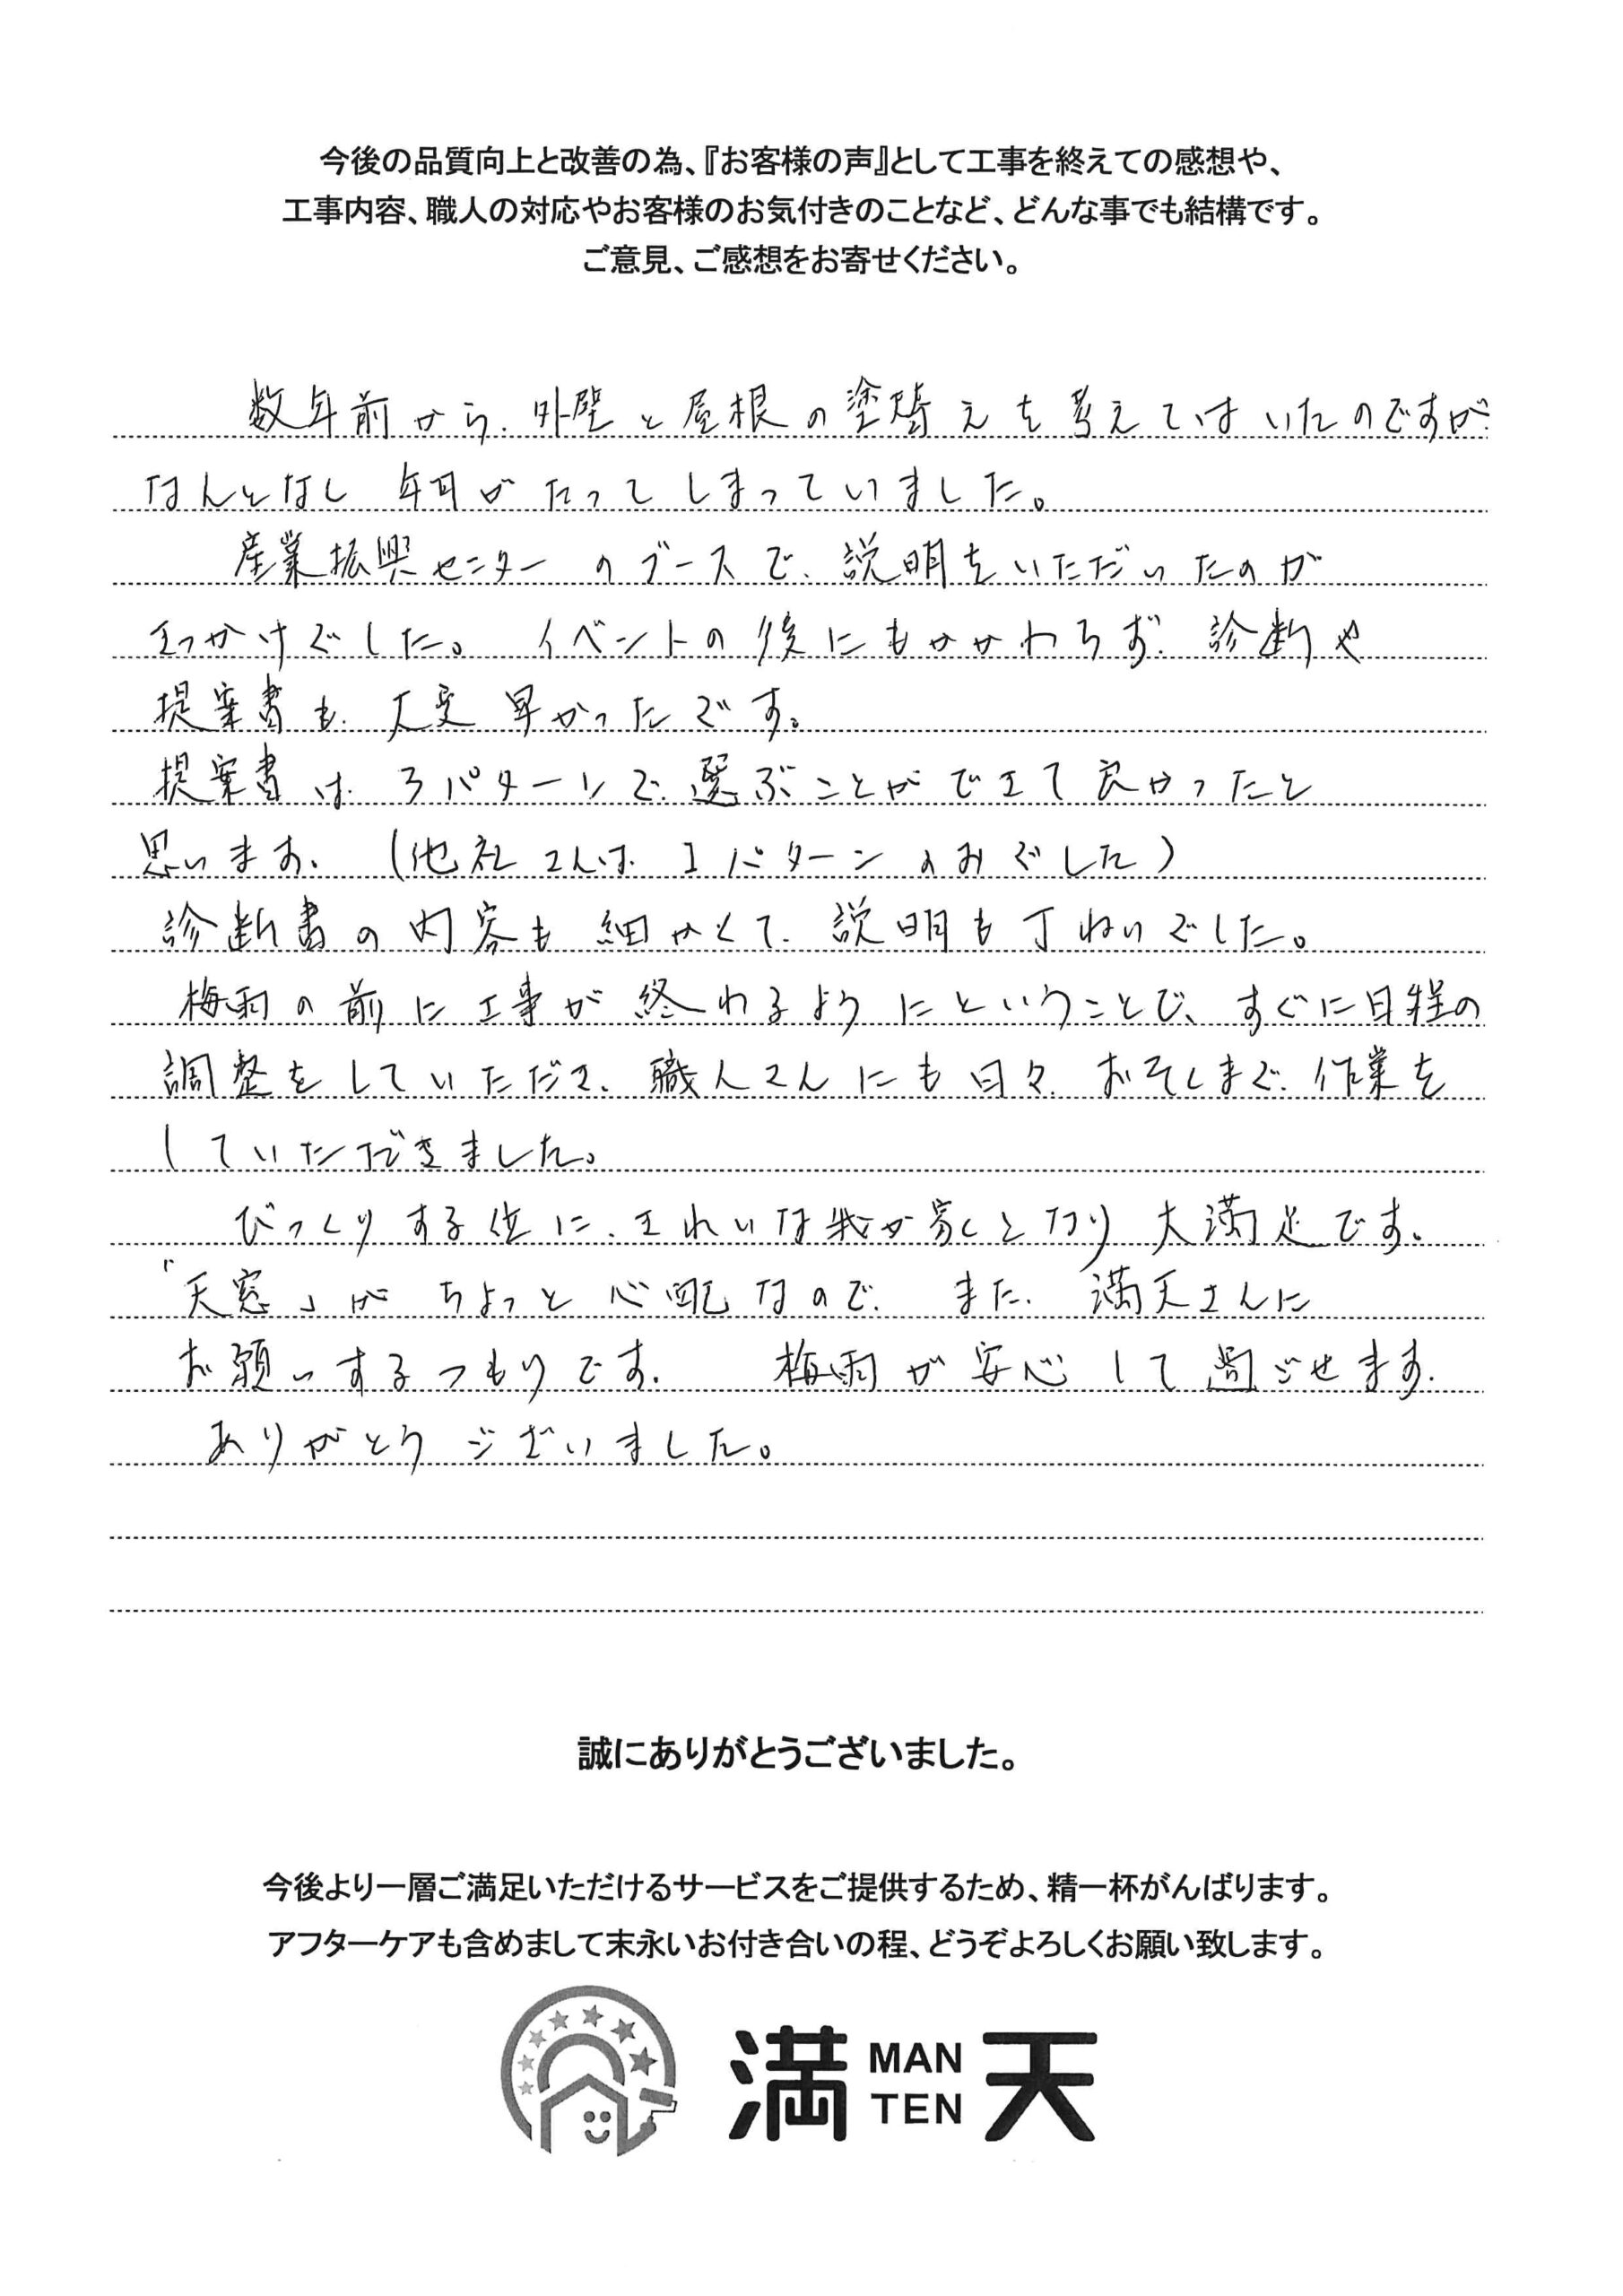 今後の品質向上と改善の為、『お客様の声』として工事を終えての感想や、
工事内容、職人の対応やお客様のお気付きのことなど、どんな事でも結構です。
ご意見、ご感想をお寄せください。
数年前から、外壁と屋根の塗替えを考えてはいたのですが、
なんとなし 年月がたってしまっていました。
産業振興センターのブースで、説明をいただいたのが
きっかけでした。イベントの後にもかかわらず、診断や
提案書も、大変早かったです。
提案書は、3パターンで、選ぶことができて良かったと
思います。(他社さんは、1パターンのみでした)
診断書の内容も細かくて、説明も丁ねいでした。
梅雨の前に工事が終わるようにということで、すぐに日程の
調整をしていただき、職人さんにも日々、おそくまで、作業を
していただきました。
びっくりする位に、きれいな我が家となり大満足です。
「天窓」がちょっと心配なので、また、満天さんに
お願いするつもりです。 梅雨が安心して過ごせます。
ありがとうございました。
誠にありがとうございました。
今後より一層ご満足いただけるサービスをご提供するため、精一杯がんばります。
アフターケアも含めまして末永いお付き合いの程、どうぞよろしくお願い致します。
満 MAN TEN 天